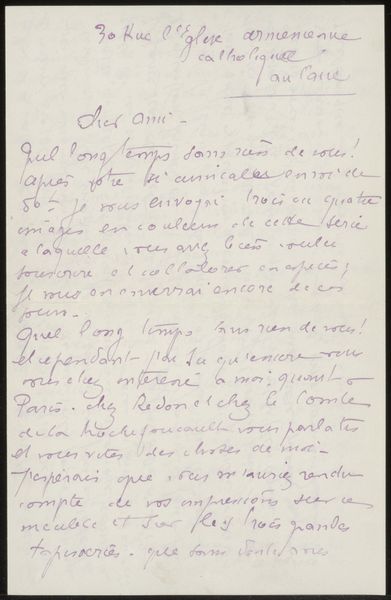 30 Rue l'Eglise armenienne
catholique
au Caire
Cher Ami -
Quel long temps sans rien de vous!
après votre si amicales envoi de
50 fr je vous envoyai trois ou quatre
images en couleurs de cette serie
a laquelle vous avez bien voulu
souscrire et collaborer en especes;
je vous en enverrai encore de ces
jours.
Quel long temps sans rien de vous!
et cependant j'ai su qu'encore vous
vous etiez interessé a moi, quant à
Paris. chez Redon et chez le Comte
de la Rochefoucauld vous parlates
et vous vites des choses de moi -
J'esperais que vous m'auriez rendu
compte de vos impressions sur ces
meubles et sur les trois grandes
tapisseries - que sans doute vous